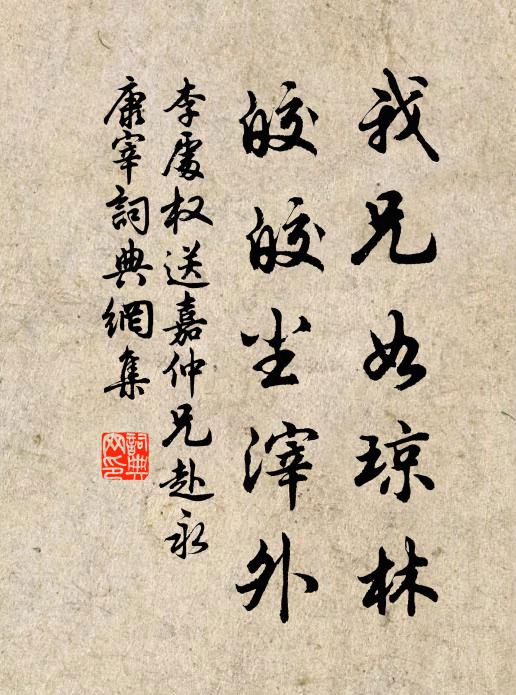 我兄如琼林
皎皎尘滓外
李处权送嘉仲兄赴永
康宰詞典網集
詞典网印